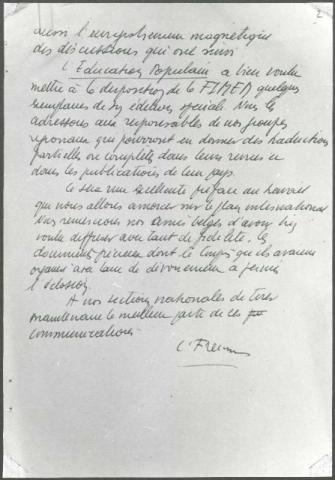 aussi l'enregistrement magnétique
des discussions qui ont suivi
L'Education Populaire a bien voulu
mettre à la disposition de la FIMEM quelques
exemplaires de son édition spéciale. Nous les
adressons aux responsables de nos groupes
régionaux qui pourront en donner des traductions
partielles ou complètes dans leurs revues ou
dans les publications de leur pays.
Ce sera une excellente préface au travail
que nous allons amorcer sur le plan international
Nous remercions nos amis belges d'avoir bien
voulu diffuser avec tant de fidélité, les
documents précieux dont le Congrès qu'ils avaient
organisé avec tant de dévouement a permis
l'éclosion.
A nos sections nationales de tirer
maintenant le meilleur parti de ces
communications.
C. Freinet